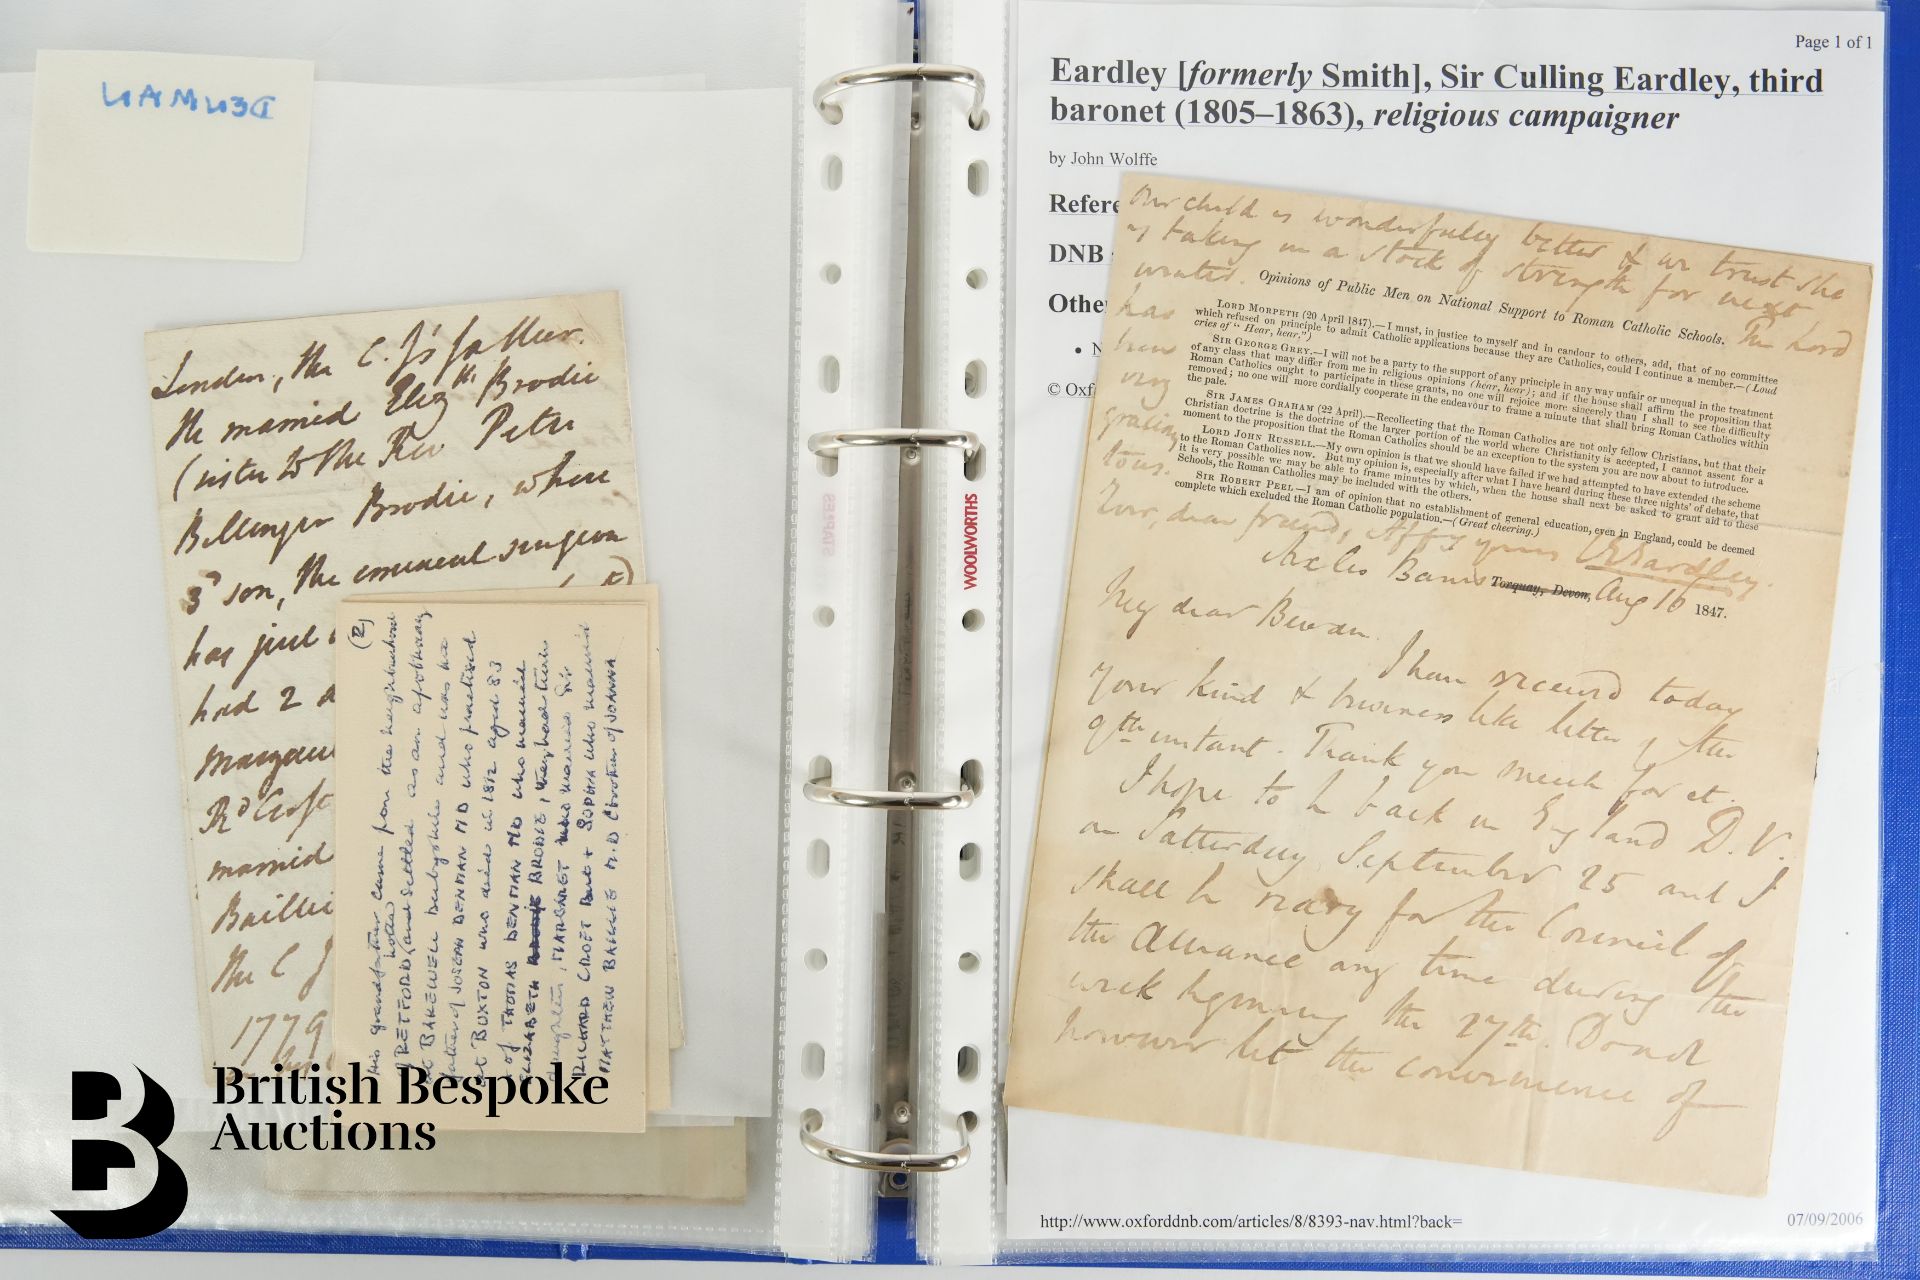 DENMAN
London, the C. J's father.
He married Eliz.th Brodie
(sister to the Rev Peter
Bellinger Brodie, whose
3d son, the eminent surgeon
has just
had 2 d
Margaret
Rd Croft
married
Baillie
The C J
1779
(2)
His grandfather came from the neighbourhood
of RETFORD, Notts and settled as an apothecary
at BAKEWELL Derbyshire and was the
father of JOSEPH DENMAN MD who practised
at BUXTON who died in 1812 aged 83
+ of THOMAS DENMAN MD who married
ELIZABETH BRODIE, they had twin
daughters, MARGARET who married Sir
RICHARD CROFT Bart + SOPHIA who married
MATTHEW BAILLIE M.D (brother of JOANNA
British Bespoke
Auctions
STAPLES
WOOLWORTHS
Page 1 of 1
Eardley [formerly Smith], Sir Culling Eardley, third
baronet (1805–1863), religious campaigner
by John Wolffe
Refere
DNB
Othe
• N
© Oxf
Our child is wonderfully better & we trust she
is taking in a stock of strength for next
winter. The Lord
has
been
very
gracious
to us.
Opinions of Public Men on National Support to Roman Catholic Schools.
LORD MORPETH (20 April 1847).—I must, in justice to myself and in candour to others, add, that of no committee
which refused on principle to admit Catholic applications because they are Catholics, could I continue a member.—(Loud
cries of "Hear, hear.")
SIR GEORGE GREY.—I will not be a party to the support of any principle in any way unfair or unequal in the treatment
of any class that may differ from me in religious opinions (hear, hear); and if the house shall affirm the proposition that
Roman Catholics ought to participate in these grants, no one will rejoice more sincerely than I shall to see the difficulty
removed; no one will more cordially cooperate in the endeavour to frame a minute that shall bring Roman Catholics within
the pale.
SIR JAMES GRAHAM (22 April).—Recollecting that the Roman Catholics are not only fellow Christians, but that their
Christian doctrine is the doctrine of the larger portion of the world where Christianity is accepted, I cannot assent for a
moment to the proposition that the Roman Catholics should be an exception to the system you are now about to introduce.
LORD JOHN RUSSELL.—My own opinion is that we should have failed if we had attempted to have extended the scheme
to the Roman Catholics now. But my opinion is, especially after what I have heard during these three nights' of debate, that
it is very possible we may be able to frame minutes by which, when the house shall next be asked to grant aid to these
Schools, the Roman Catholics may be included with the others.
SIR ROBERT PEEL.—I am of opinion that no establishment of general education, even in England, could be deemed
complete which excluded the Roman Catholic population.—(Great cheering.)
Ever, dear friend, Affly yours C E Eardley.
Aix les Bains Torquay, Devon, Aug 16 1847.
My dear Bevan.
I have received today
your kind & business like letter of the
9th instant. Thank you much for it.
I hope to be back in England D.V.
on Satterday September 25 and I
shall be ready for the Council of
the Alliance any time during the
week beginning the 27th. Do not
however let the convenience of
http://www.oxforddnb.com/articles/8/8393-nav.html?back=
07/09/2006